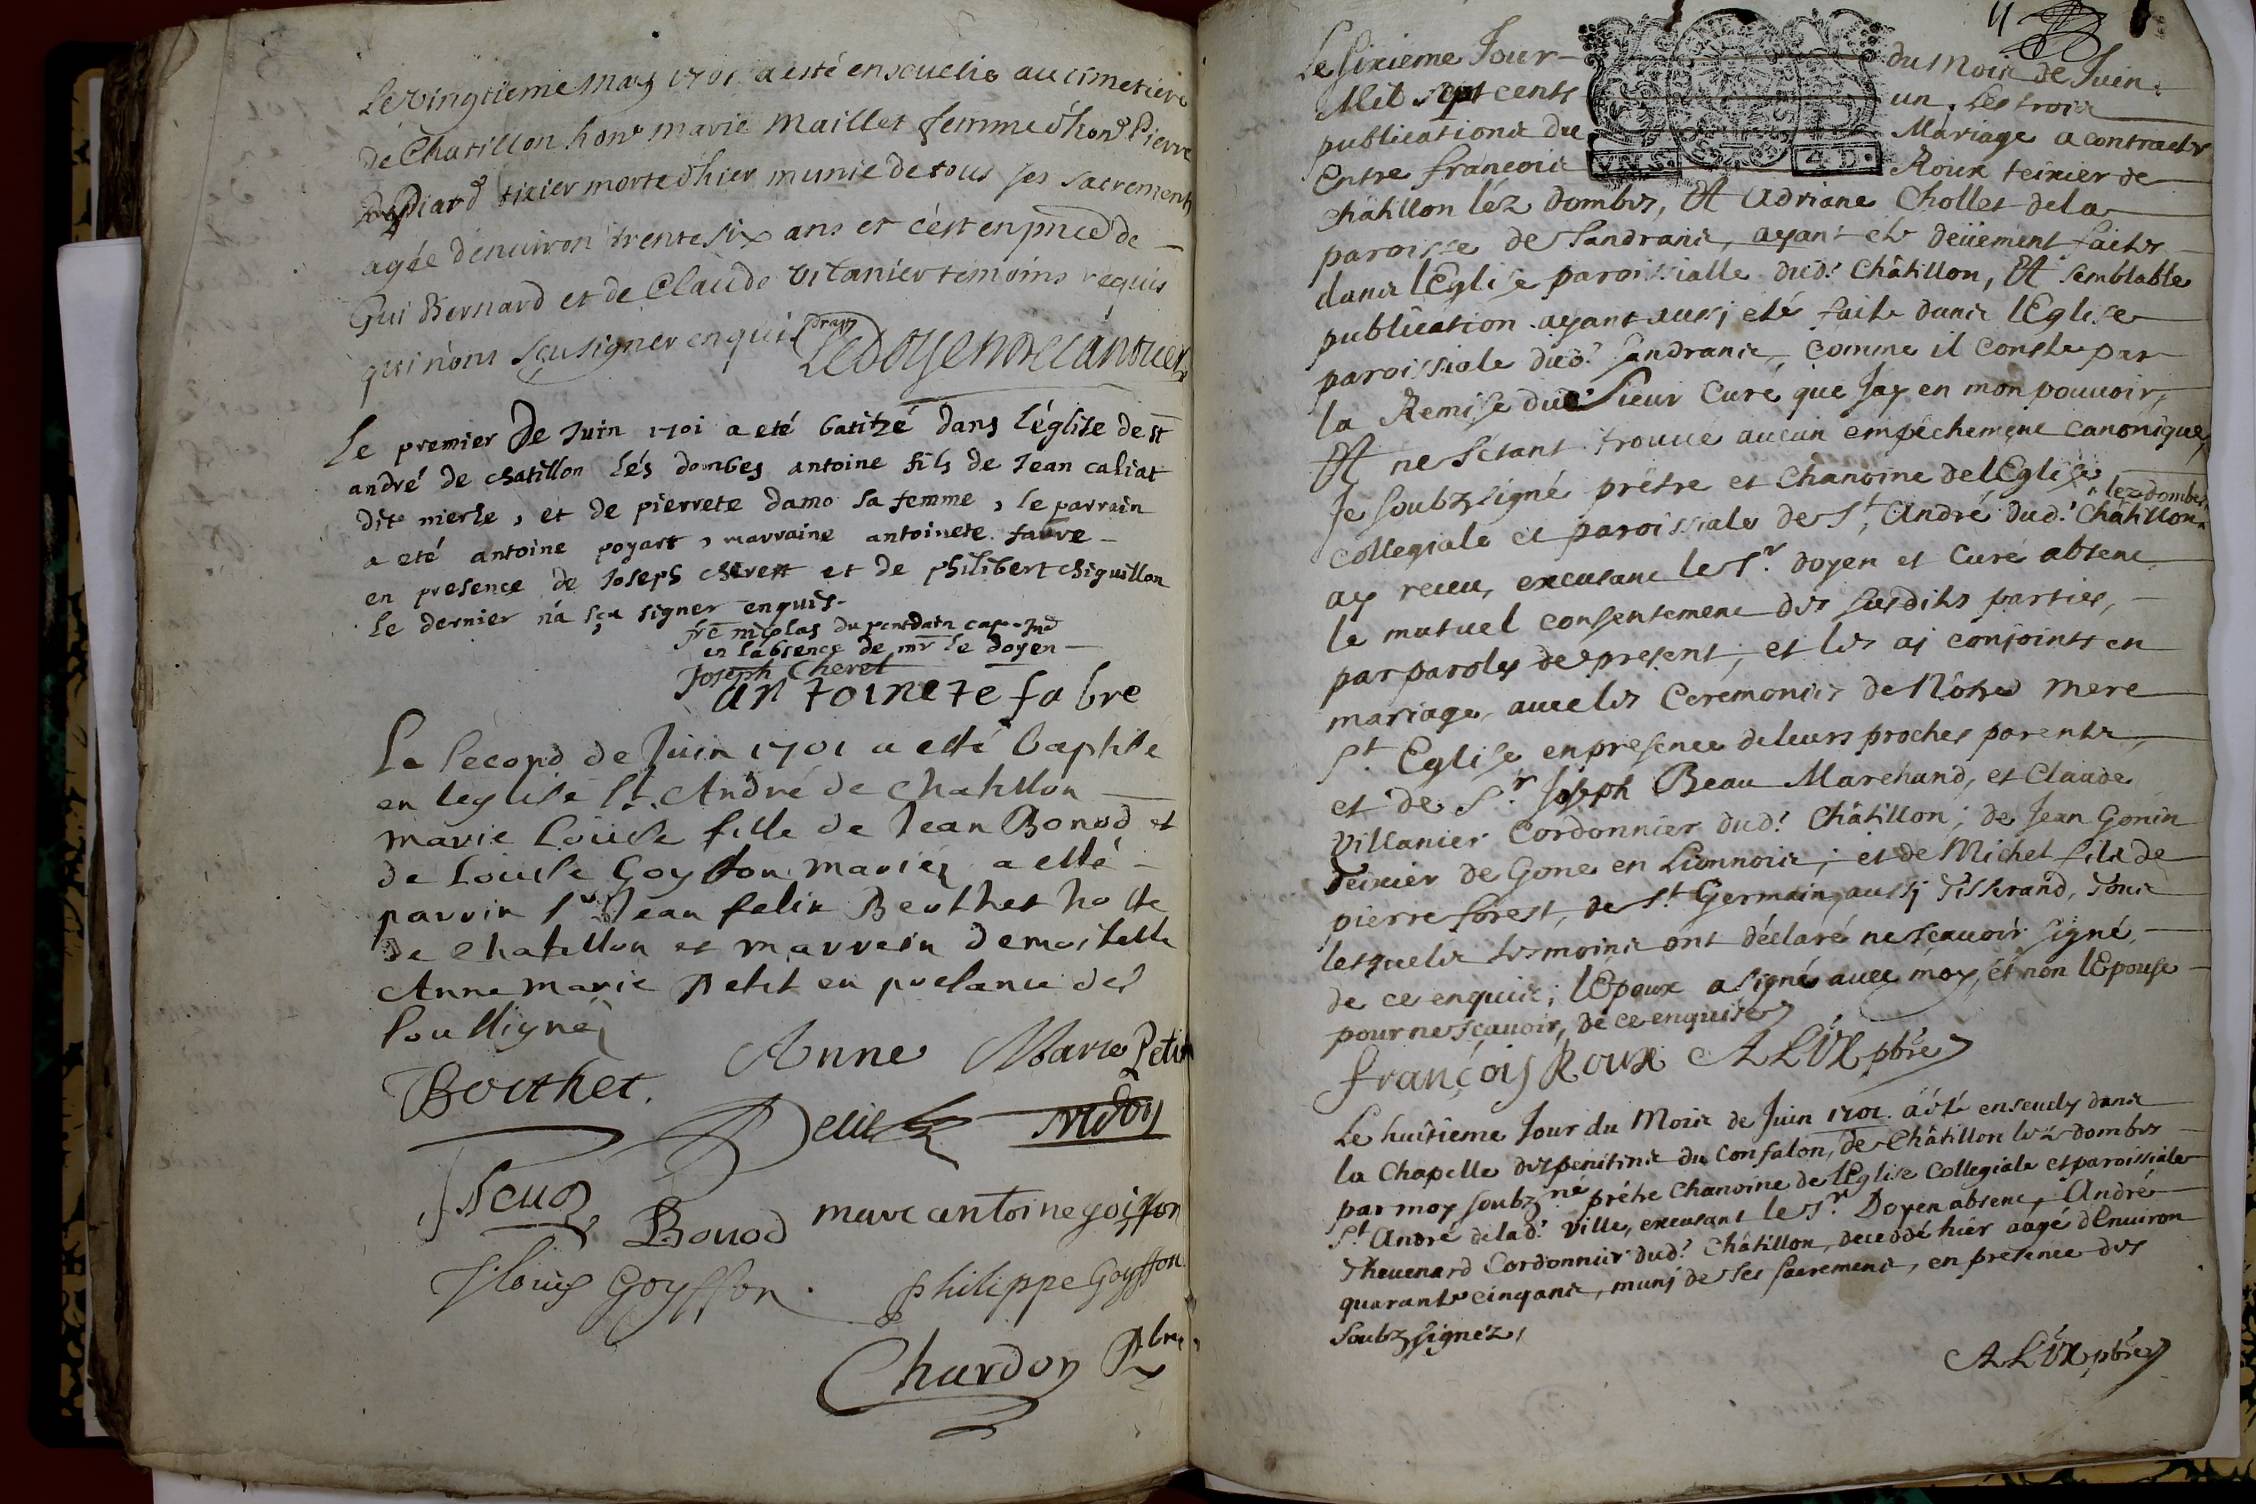 Le vingtieme may 1701 a esté ensevelie au cimetiere
de Chatillon hon.e marie maillet femme d'hon.e Pierre
tixier morte d'hier munie de tous ses sacrements
agée d'environ trente six ans et c'est en pnce de
Gui Bernard et de Claude vilanier temoins requis
qui n'ont sçu signer enquis
Le premier De Juin 1701 a eté batizé dans l'église de st
andré de chatillon lés dombes antoine fils de Jean caliat
dit merle, et de pierrete damo sa femme, le parrain
a eté antoine poyart, marraine antoinete favre
en presence de Joseph cheret et de philibert chiguillon
le dernier n'a sçu signer enquis.
fre nicolas du
en l'absence de mr le doyen
Joseph Cheret
antoinete fabre
Le second de Juin 1701 a esté baptise
en leglise st. André de Chatillon
marie Loüise fille de Jean Bonod et
de Louise Goyffon mariez a esté
parrin sr Jean felix Berthet hoste
de chatillon et marrein demoiselle
Anne marie Petit en presance des
soussignéz
Berthet. Anne Marie Petit
Petit
Bonod marc antoine goiffon
Louis Goyffon philippe Goyffon
Chardon Pbre
11
Le sixieme Jour du Mois de Juin
Mil sept cents un, les trois
publications du Mariage a contracter
Entre francois Roux teixier de
VN.S. 4.D.
châtillon léz dombes, Et Adriane Chollet de la
paroisse de Sandrans, ayant eté deüement faites
dans lEglise paroissialle dud.t Châtillon, Et semblable
publication ayant aussj eté faite dans lEglise
paroissiale dud.t Sandrans, comme il conste par
la Remise dud Sieur Curé que Jay en mon pouvoir,
Et ne sétant trouué aucun empêchement canonique,
Je soubzsigné prêtre et Chanoine de lEglise
lez dombes
collegiale et paroissiale de St. André dud.t Châtillon
ay receu, excusant le Sr. doyen et Curé absent
le mutuel consentement des susdites parties,
par paroles de present, et les aj conjoints en
mariage, auec les Cerémonies de Nôtre mere
St. Eglise en presence de leurs proches parents,
et de Sr. Joseph Beau Marchand, et Claude
Villanier Cordonnier dud.t Châtillon; de Jean Gonin
Teixier de Gone en Lionnois; et de Michel fils de
pierre forest, de St. Germain, aussj Tisserand, Tous
lesquels tesmoins ont déclaré ne sçauoir signé,
de ce enquis; lEpoux a signé auec moy, et non lEpouse
pour ne sçauoir, de ce enquise
françois Roux ALUX pbre
Le huitieme Jour du Mois de Juin 1701. a été enseuely dans
la Chapelle des penitens du Confalon, de Châtillon lez dombes
par moy soubzné prêtre Chanoine de lEglise Collegiale et paroissiale
St. André de lad.t Ville, excusant le Sr. Doyen absent, André
Theuenard Cordonnier dud.t Châtillon, decedé hier aagé dEnuiron
quarante cinq ans, munj de ses sacremens, en presence des
soubzsignéz,
ALUX pbre